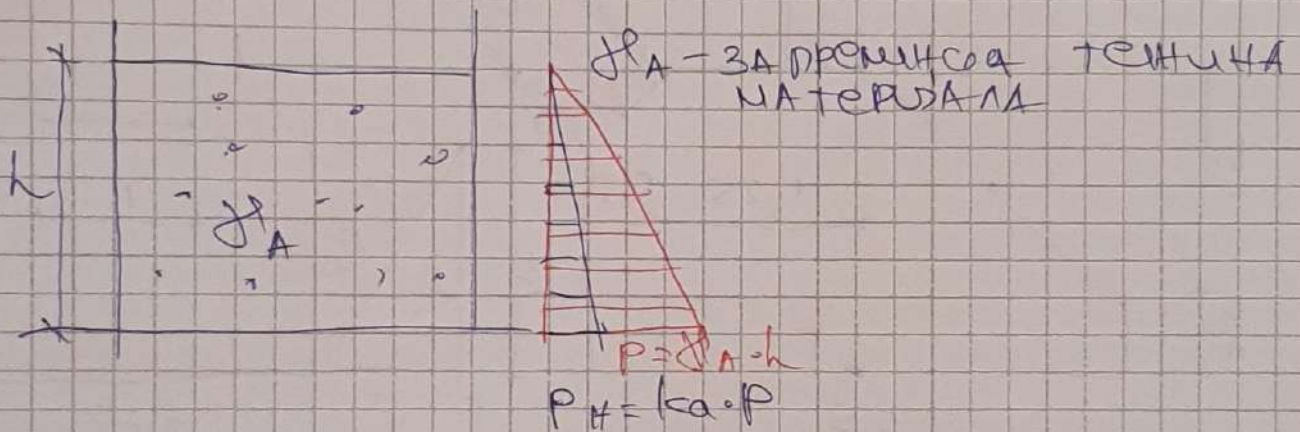 γA - ЗАПРЕМИНСКА ТЕЖИНА
МАТЕРИЈАЛА
h
γA
P = γA · h
PH = ka · P